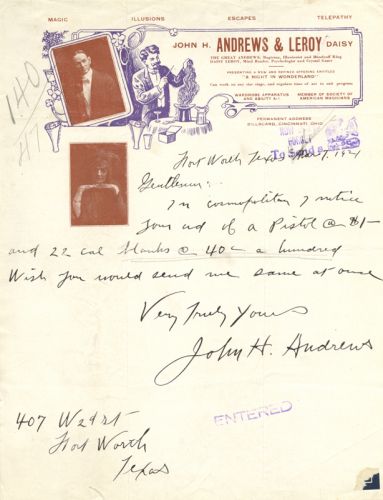 MAGIC ILLUSIONS ESCAPES TELEPATHY
JOHN H. ANDREWS & LEROY DAISY
THE GREAT ANDREWS, Magician, Illusionist and Handcuff King
DAISY LEROY, Mind Reader, Psychologist and Crystal Gazer
PRESENTING A NEW AND REFINED OFFERING ENTITLED
"A NIGHT IN WONDERLAND"
WARDROBE APPARATUS AND ABILITY A-1
MEMBER OF SOCIETY OF AMERICAN MAGICIANS
PERMANENT ADDRESS
BILLBOARD, CINCINNATI, OHIO
Fort Worth Texas
Gentlemen:-
In Cosmopolitan I notice
your ad of a Pistol @ $1-
and 22 cal blanks @ 40c a hundred
Wish you would send me same at once
Very Truly Yours
John H. Andrews
ENTERED
407 W 2d st
Fort Worth
Texas